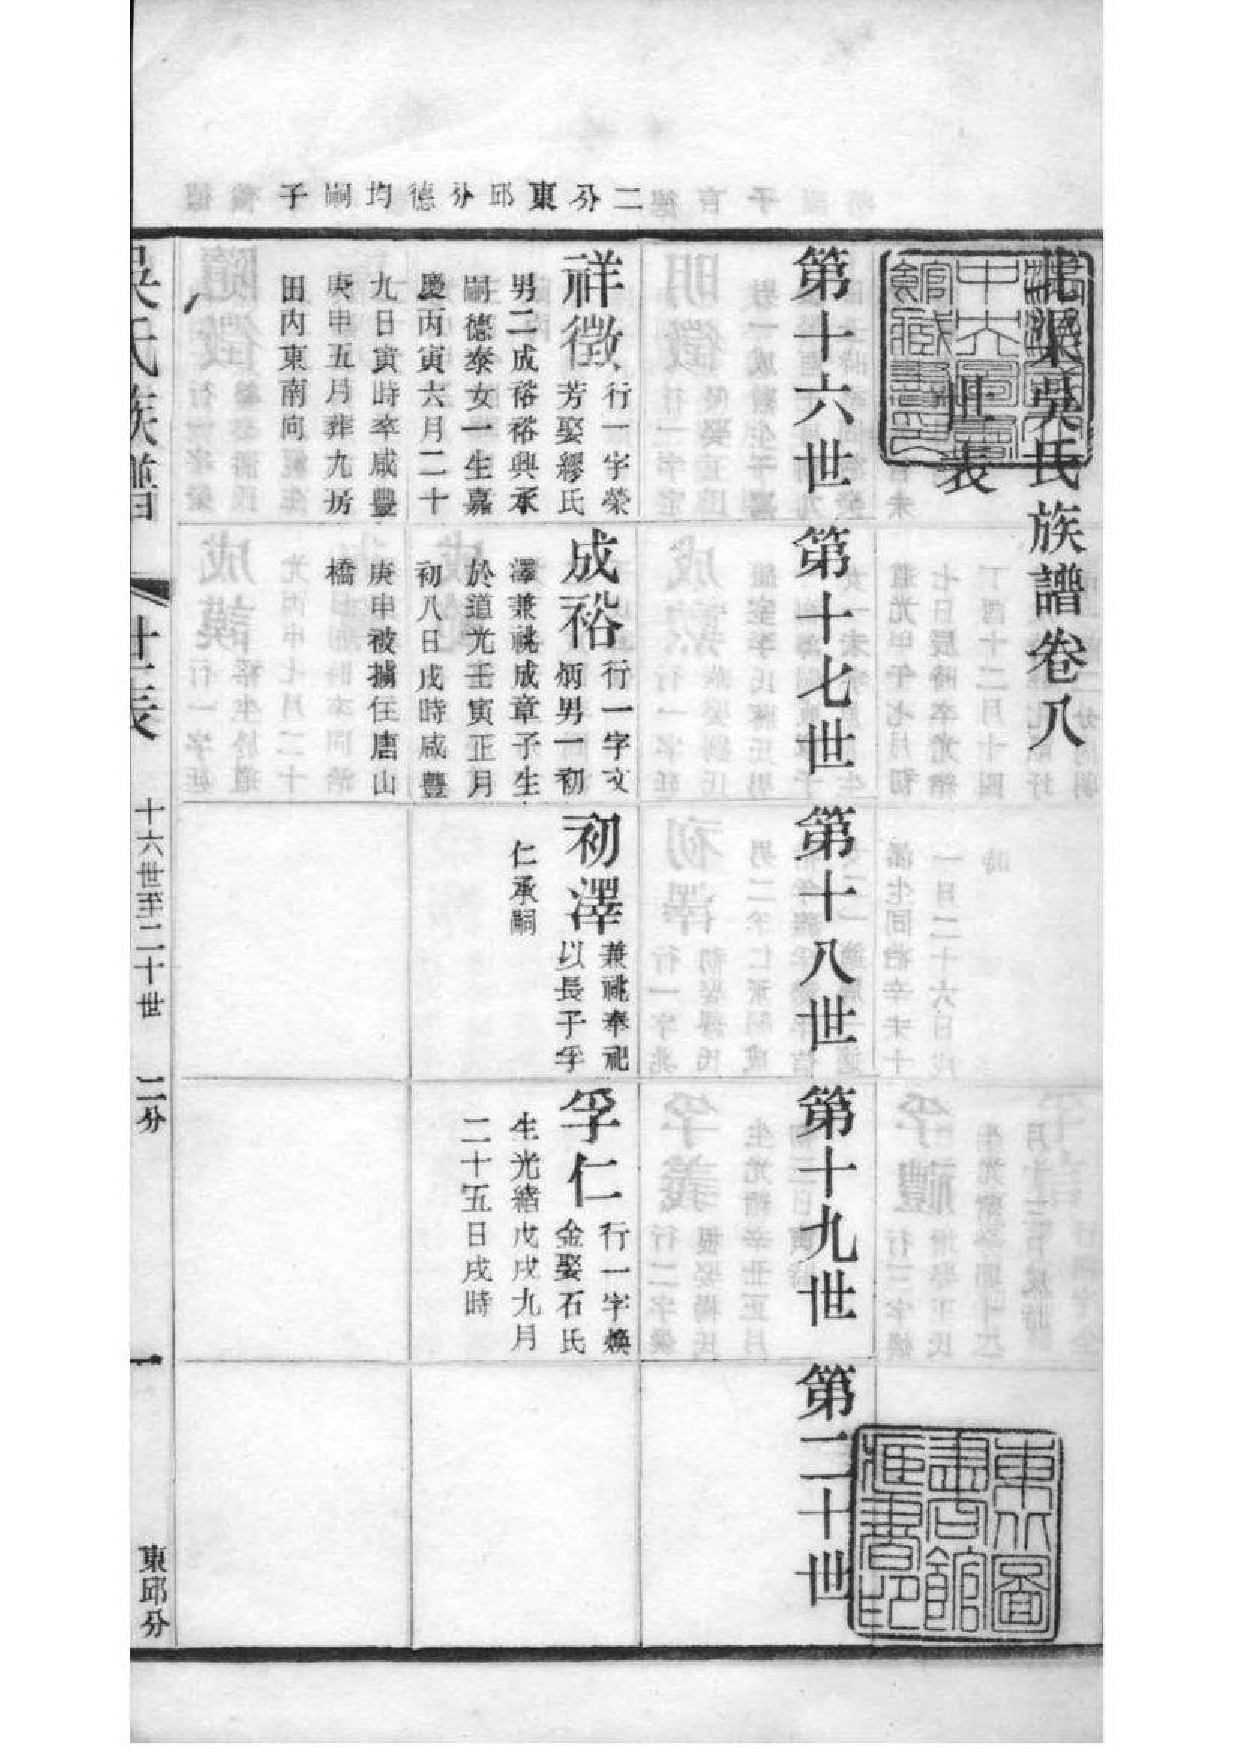 二分東邱分德均嗣子
北渠吳氏族譜卷八
世表
第十六世
祥徵
行一字榮
芳娶繆氏
男二成裕裕興承
嗣德泰女一生嘉
慶丙寅六月二十
九日寅時卒咸豐
庚申五月葬九房
田内東南向
第十七世
成裕
行一字文
炳男一初
澤兼祧成章子生
於道光壬寅正月
初八日戌時咸豐
庚申被擄在唐山
橋
第十八世
初澤
兼祧奉祀
以長子孚
仁承嗣
第十九世
孚仁
行一字煥
金娶石氏
生光緒戊戌九月
二十五日戌時
第二十世
吳氏族譜
世表
十六世至二十世
二分
一
東邱分
東方圖書館藏書印